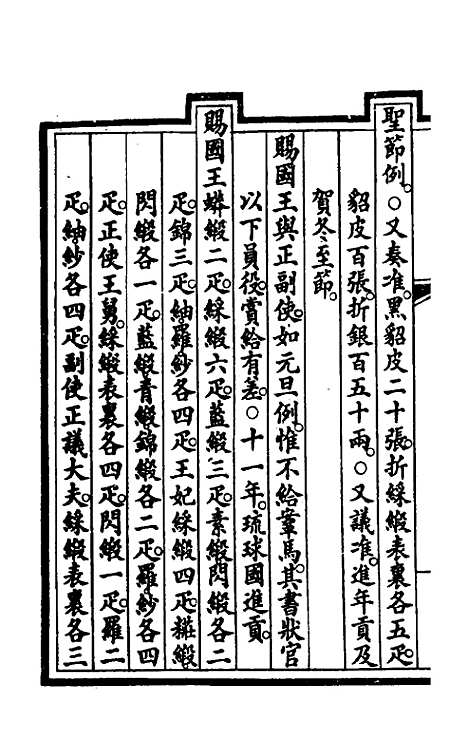 聖節例。○又奏准。黑貂皮二十張。折綵緞表裏各五疋。
貂皮百張。折銀百五十兩。○又議准。進年貢及
賀冬至節。
賜國王與正副使。如元旦例。惟不給鞌馬。其書狀官
以下員役。賞給有差。○十一年。琉球國進貢。
賜國王蟒緞二疋。綵緞六疋。藍緞三疋。素緞閃緞各二
疋。錦三疋。紬羅紗各四疋。王妃綵緞四疋。粧緞
閃緞各一疋。藍緞青緞錦緞各二疋。羅紗各四
疋。正使王舅。綵緞表裏各四疋。閃緞一疋。羅二
疋。紬紗各四疋。副使正議大夫。綵緞表裏各三